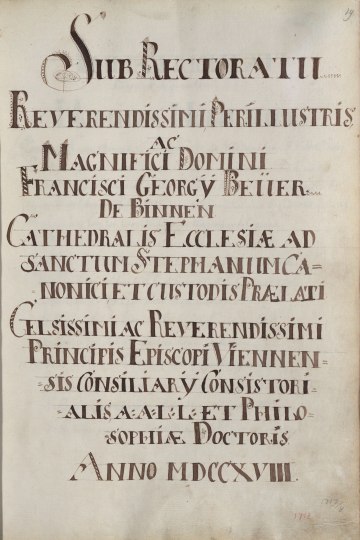 19
SUB RECTORATU
REVERENDISSIMI PERILLUSTRIS
AC
MAGNIFICI DOMINI
FRANCISCI GEORGÿ BEÜER
DE BINNEN
CATHEDRALIS ECCLESIÆ AD
SANCTUM STEPHANUM CA-
NONICI ET CUSTODIS PRÆLATI
CELSISSIMI AC REVERENDISSIMI
PRINCIPIS EPISCOPI VIENNEN-
SIS CONSILIARÿ CONSISTORI-
ALIS A.A.L.L. ET PHILO-
SOPHIÆ DOCTORIS
ANNO MDCCXVIII.